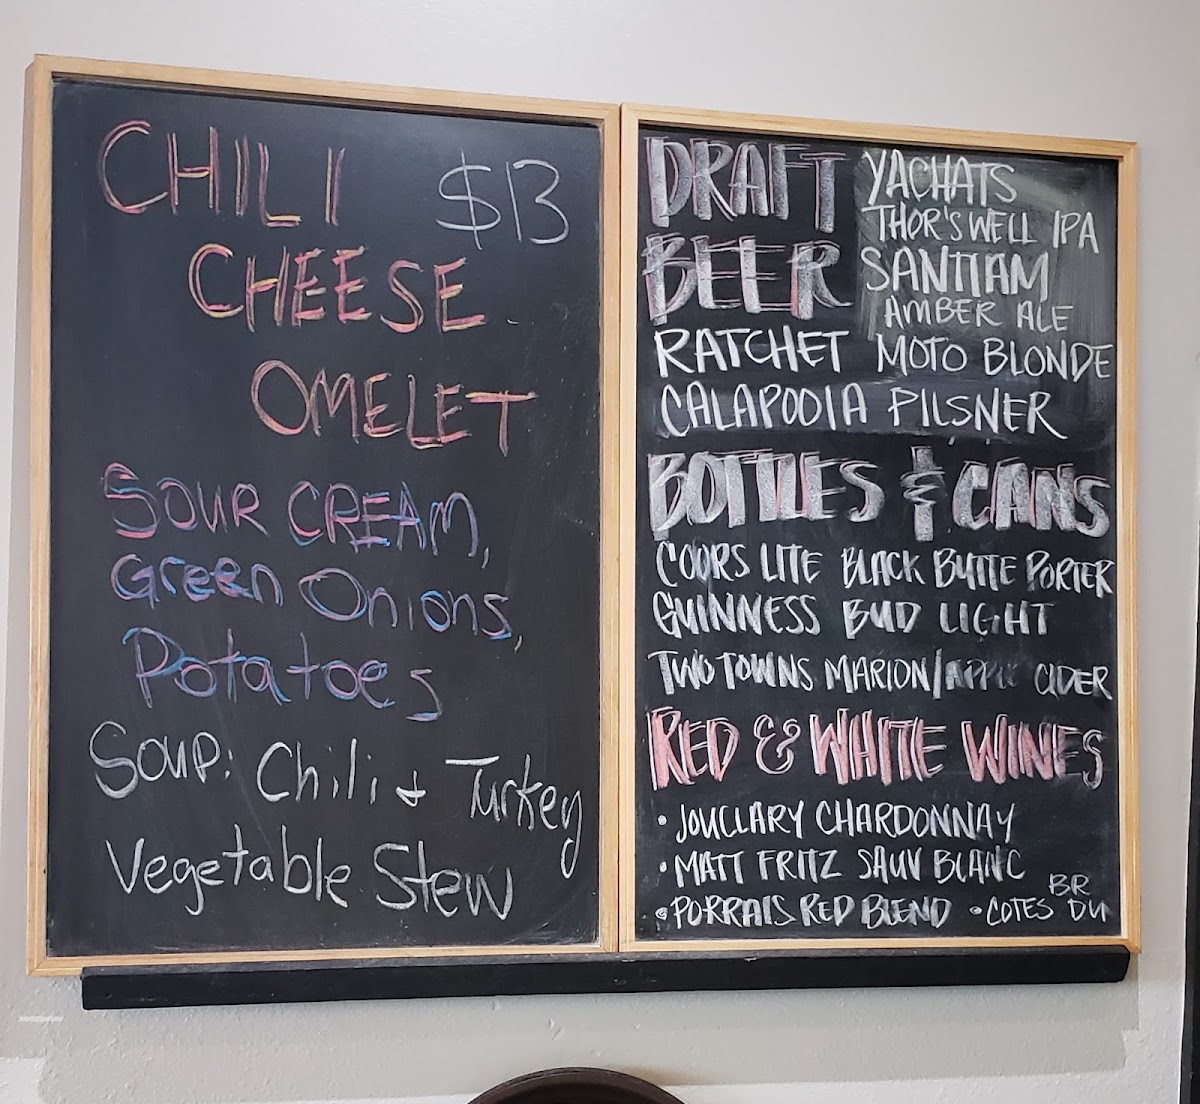 CHILI $13
CHEESE
OMELET
SOUR CREAM,
Green Onions,
Potatoes
Soup: Chili & Turkey
Vegetable Stew
DRAFT
BEER
YACHATS
THOR'S WELL IPA
SANTIAM
AMBER ALE
RATCHET MOTO BLONDE
CALAPOOIA PILSNER
BOTTLES & CANS
COORS LITE BLACK BUTTE PORTER
GUINNESS BUD LIGHT
TWO TOWNS MARION/APPLE CIDER
RED & WHITE WINES
• JOULLARY CHARDONNAY
• MATT FRITZ SAUV BLANC
• PORRAIS RED BLEND • COTES DU
BR